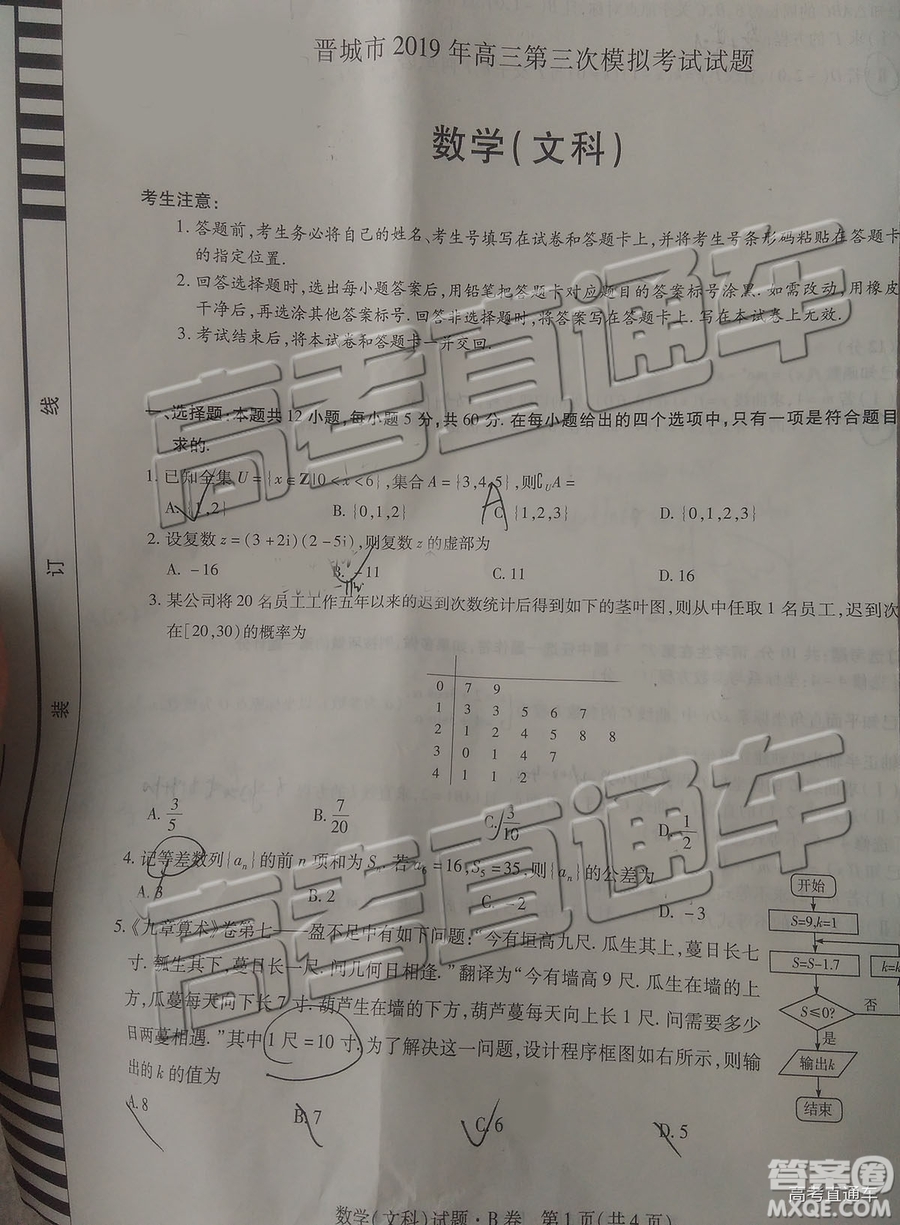 晋城市2019年高三第三次模拟考试试题
数学(文科)
考生注意:
1. 答题前,考生务必将自己的姓名、考生号填写在试卷和答题卡上,并将考生号条形码粘贴在答题卡
的指定位置.
2. 回答选择题时,选出每小题答案后,用铅笔把答题卡对应题目的答案标号涂黑.如需改动,用橡皮
干净后,再选涂其他答案标号.回答非选择题时,将答案写在答题卡上.写在本试卷上无效.
3. 考试结束后,将本试卷和答题卡一并交回.
一、选择题:本题共12小题,每小题5分,共60分.在每小题给出的四个选项中,只有一项是符合题目
求的.
1. 已知全集U={x∈Z|0<x<6},集合A={3,4,5},则∁UA=
A. {1,2} B. {0,1,2} C. {1,2,3} D. {0,1,2,3}
A
2. 设复数z=(3+2i)(2-5i),则复数z的虚部为
A. -16 B. -11 C. 11 D. 16
3. 某公司将20名员工工作五年以来的迟到次数统计后得到如下的茎叶图,则从中任取1名员工,迟到次
在[20,30)的概率为
0 7 9
1 3 3 5 6 7
2 1 2 4 5 8 8
3 0 1 4 7
4 1 1 2
A. 3/5 B. 7/20 C. 3/10 D. 1/2
4. 记等差数列{an}的前n项和为Sn.若a6=16,S5=35,则{an}的公差为
A. 3 B. 2 C. -2 D. -3
5.《九章算术》卷第七——盈不足中有如下问题:“今有垣高九尺.瓜生其上,蔓日长七
寸.瓠生其下,蔓日长一尺.问几何日相逢.”翻译为“今有墙高9尺.瓜生在墙的上
方,瓜蔓每天向下长7寸.葫芦生在墙的下方,葫芦蔓每天向上长1尺.问需要多少
日两蔓相遇.”其中1尺=10寸.为了解决这一问题,设计程序框图如右所示,则输
出的k的值为
A. 8 B. 7 C. 6 D. 5
开始
S=9,k=1
S=S-1.7
k=k
S≤0?
否
是
输出k
结束
线
订
装
数学(文科)试题·B卷 第1页(共4页)
高考直通车
高考直通车
答案圈
高考直通车
MXQE.COM